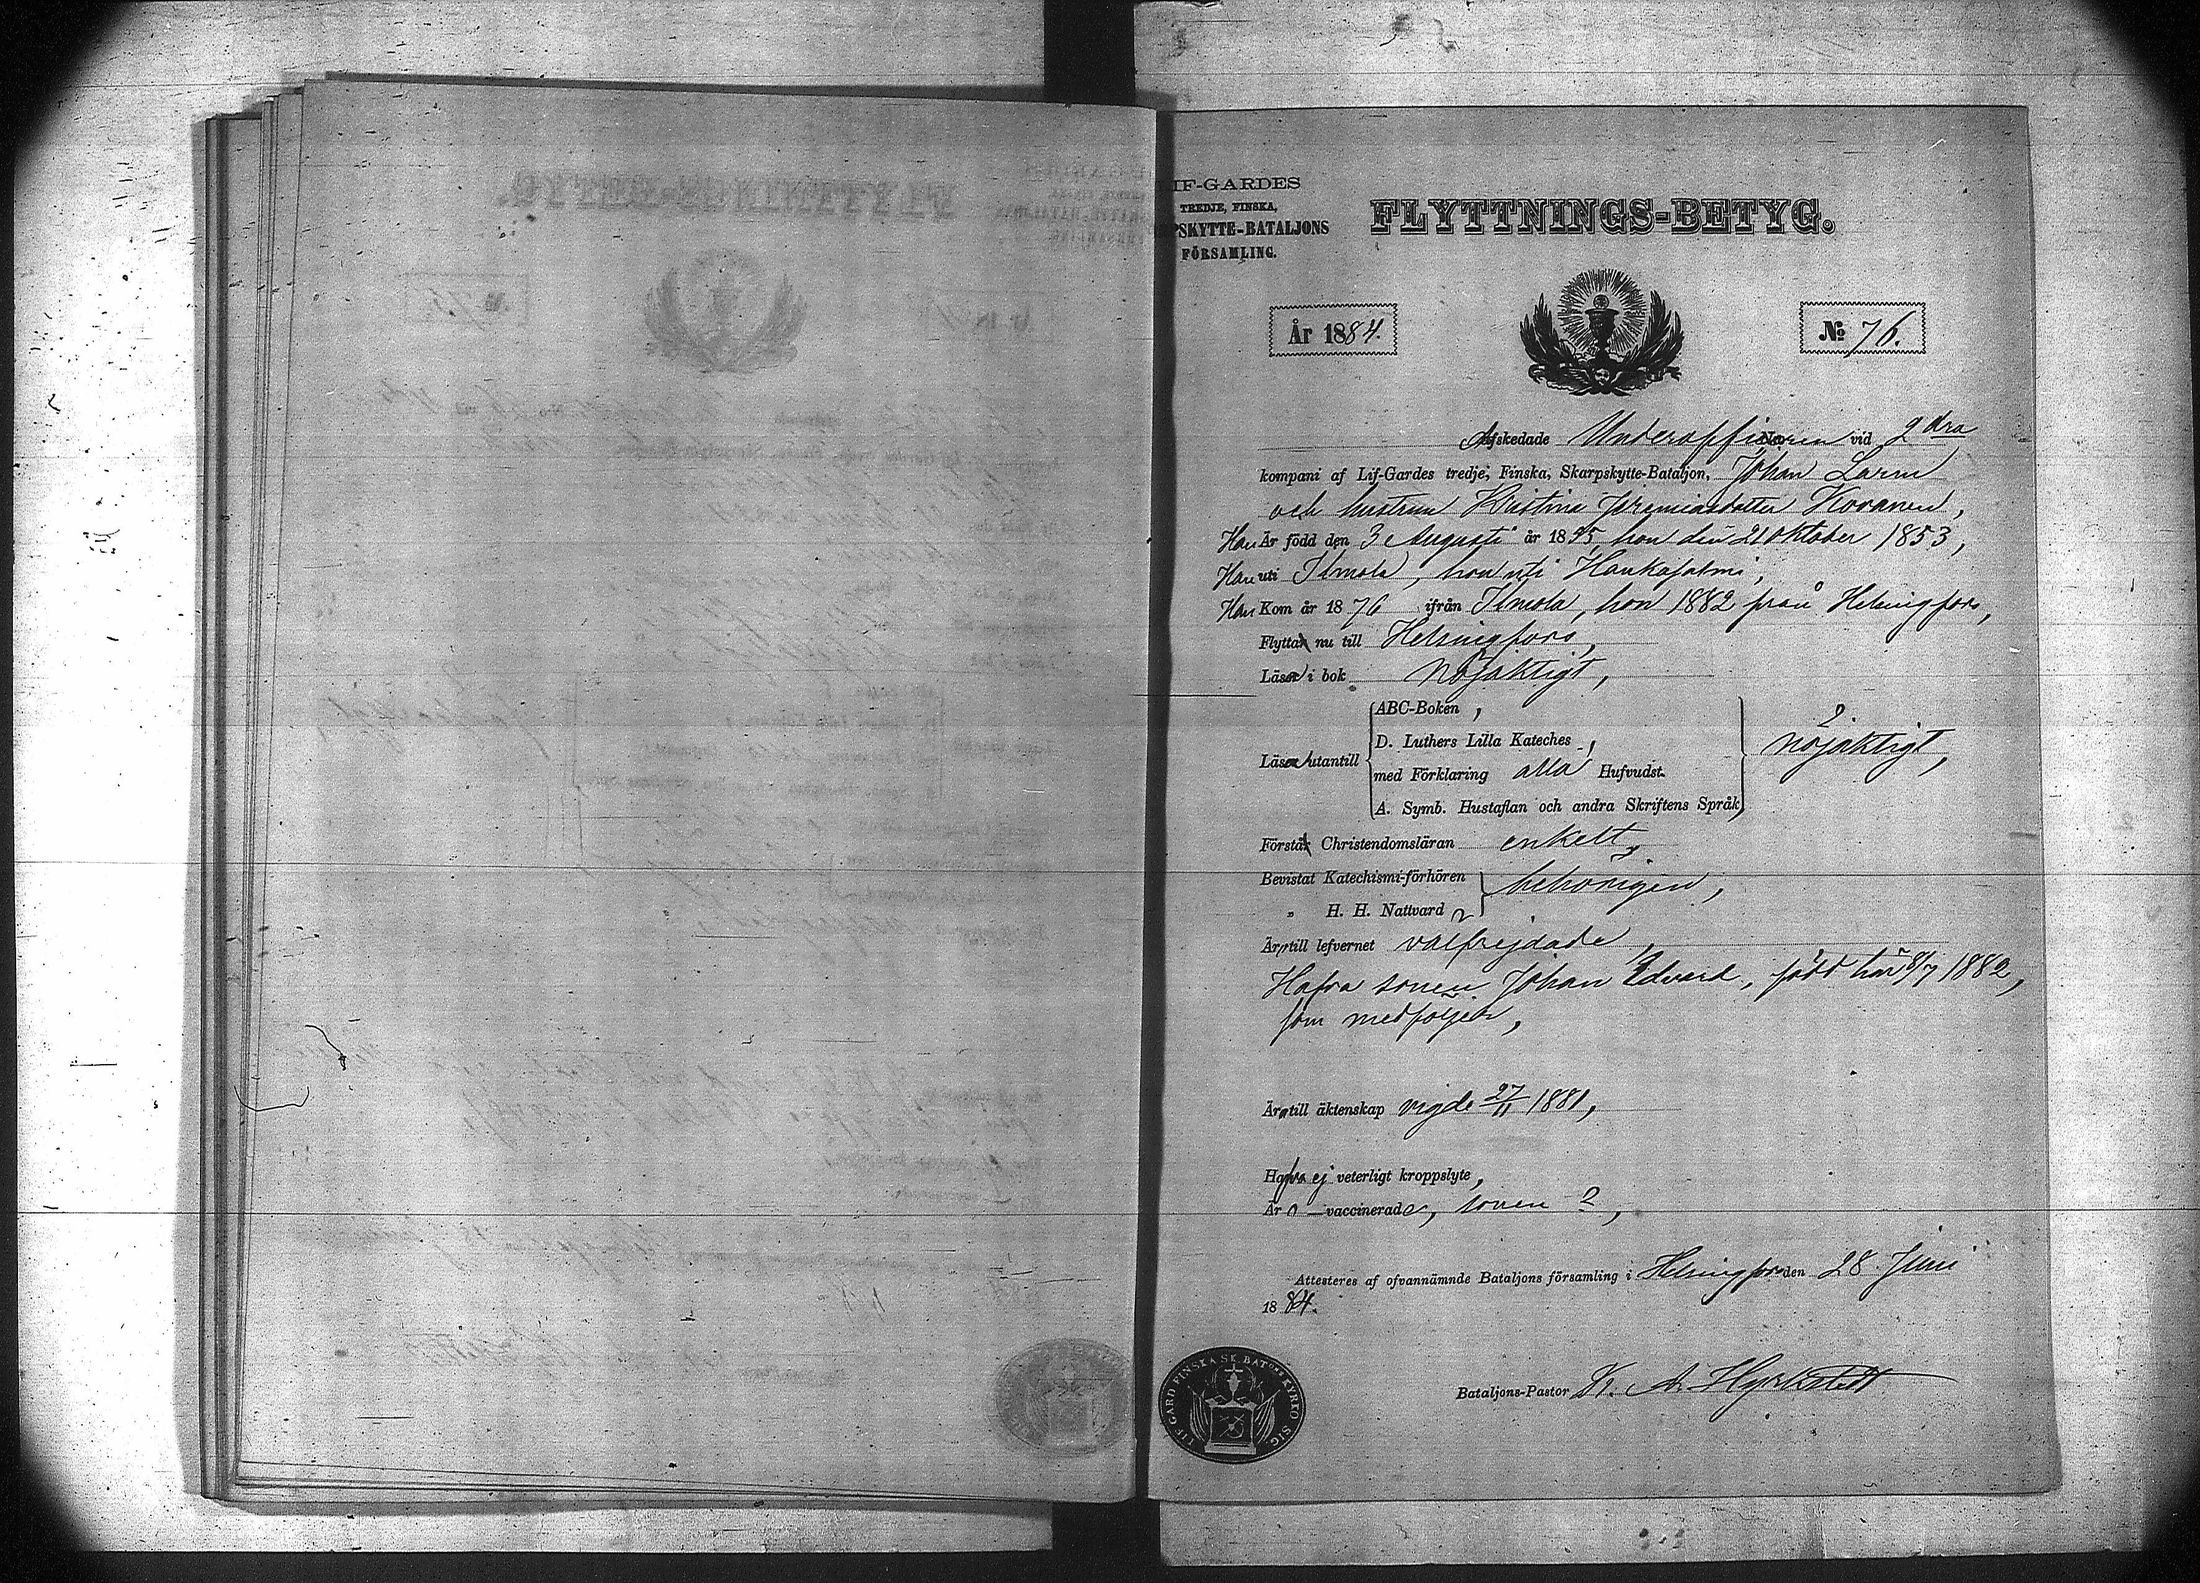 IF-GARDES
TREDJE, FINSKA,
PSKYTTE-BATALJONS
FÖRSAMLING.
FLYTTNINGS-BETYG.
År 1884.
No 76.
Afskedade Underofficeren vid 2dra
kompani af Lif-Gardes tredje, Finska, Skarpskytte-Bataljon, Johan Larm
och hustrun Kristina Jeremiasdotter Kovanen,
Han Är född den 3 Augusti år 1855 hon den 21 oktober 1853,
Han uti Jimola, hon uti Hankasalmi,
Han Kom år 1876 ifrån Jimola, hon 1882 från Helsingfors,
Flytta nu till Helsingfors,
Läsa i bok nöjaktigt,
ABC-Boken,
D. Luthers Lilla Kateches,
Läsa utantill nöjaktigt,
med Förklaring alla Hufvudst.
A. Symb. Hustaflan och andra Skriftens Språk,
Förstå Christendomsläran enkelt,
Bevistat Katechismi-förhören behörigen,
„ H. H. Nattvard
Äro till lefvernet välfrejdade,
Hafva sonen Johan Edvard, född här 8/7 1882,
som medföljer,
Äro till äktenskap vigde 27/11 1881,
Hafva ej veterligt kroppslyte,
Äro vaccinerade, sonen ?,
Attesteres af ofvannämnde Bataljons församling i Helsingfors den 28 Juni
1884.
LIF-GARD FINSKA SK. BATONS KYRKO SIG.
Bataljons-Pastor K. A. Hyrkstedt